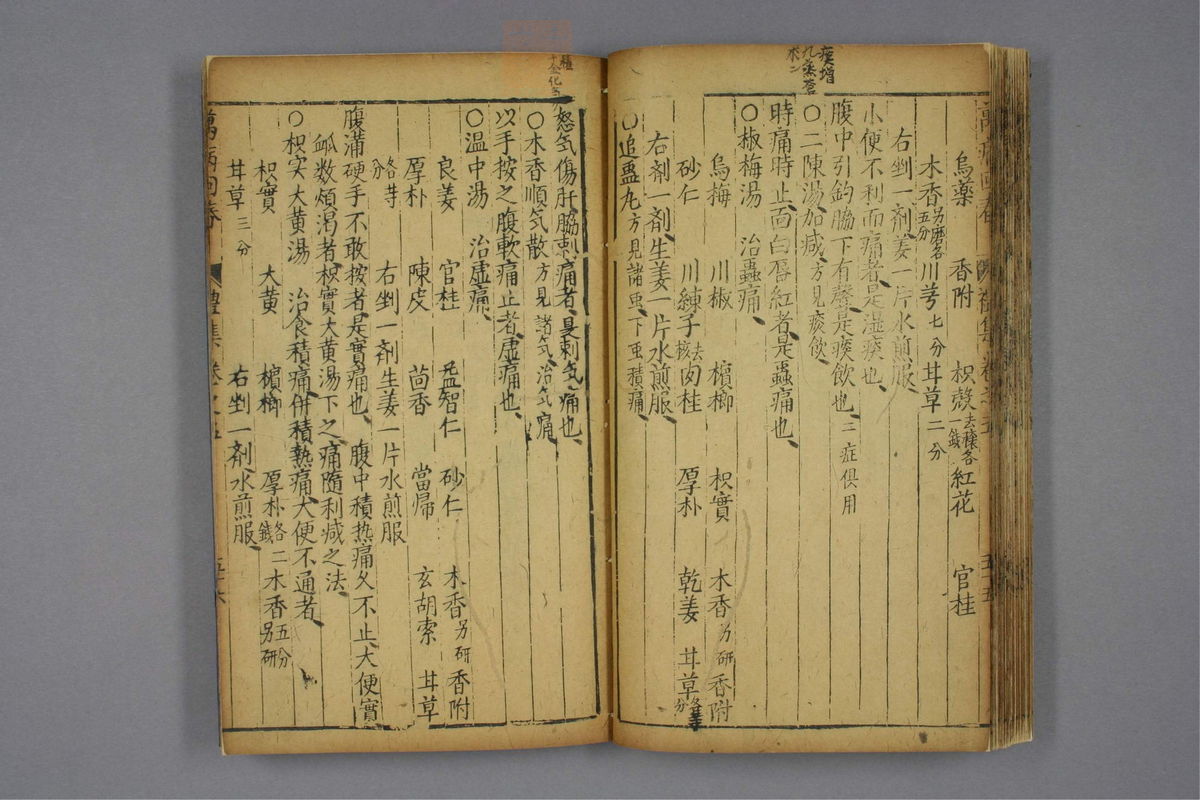 烏藥 香附 枳殼去穰各一錢 紅花 官桂
木香另磨各五分 川芎七分 甘草二分
右剉一劑姜一片水煎服
小便不利而痛者是湿痰也
腹中引鈎脇下有聲是痰飲也 二症俱用
〇二陳湯加减方見痰飲
時痛時止面白唇紅者是蟲痛也
〇椒梅湯 治蟲痛
烏梅 川椒 檳榔 枳實 木香另研 香附
砂仁 川練子去核 肉桂 厚朴 乾姜 甘草各等分
右剤一剤生姜一片水煎服
〇追虫丸方見諸虫 下虫積痛
怒気傷肝脇刺痛者是刺気痛也
〇木香順気散方見諸気 治気痛
以手按之腹軟痛止者虚痛也
〇温中湯 治虚痛
良姜 官桂 益智仁 砂仁 木香另研 香附
厚朴 陳皮 茴香 當帰 玄胡索 甘草
各等分 右剉一剤生姜一片水煎服
腹滿硬手不敢按者是實痛也 腹中積热痛久不止大便實
脉数煩渴者枳實大黄湯下之痛隨利减之法
〇枳实大黄湯 治食積痛併積熱痛大便不通者
枳實 大黄 檳榔 厚朴各二錢 木香五分另研
甘草三分 右剉一剤水煎服
萬病回春 禮集 卷之五 五十六